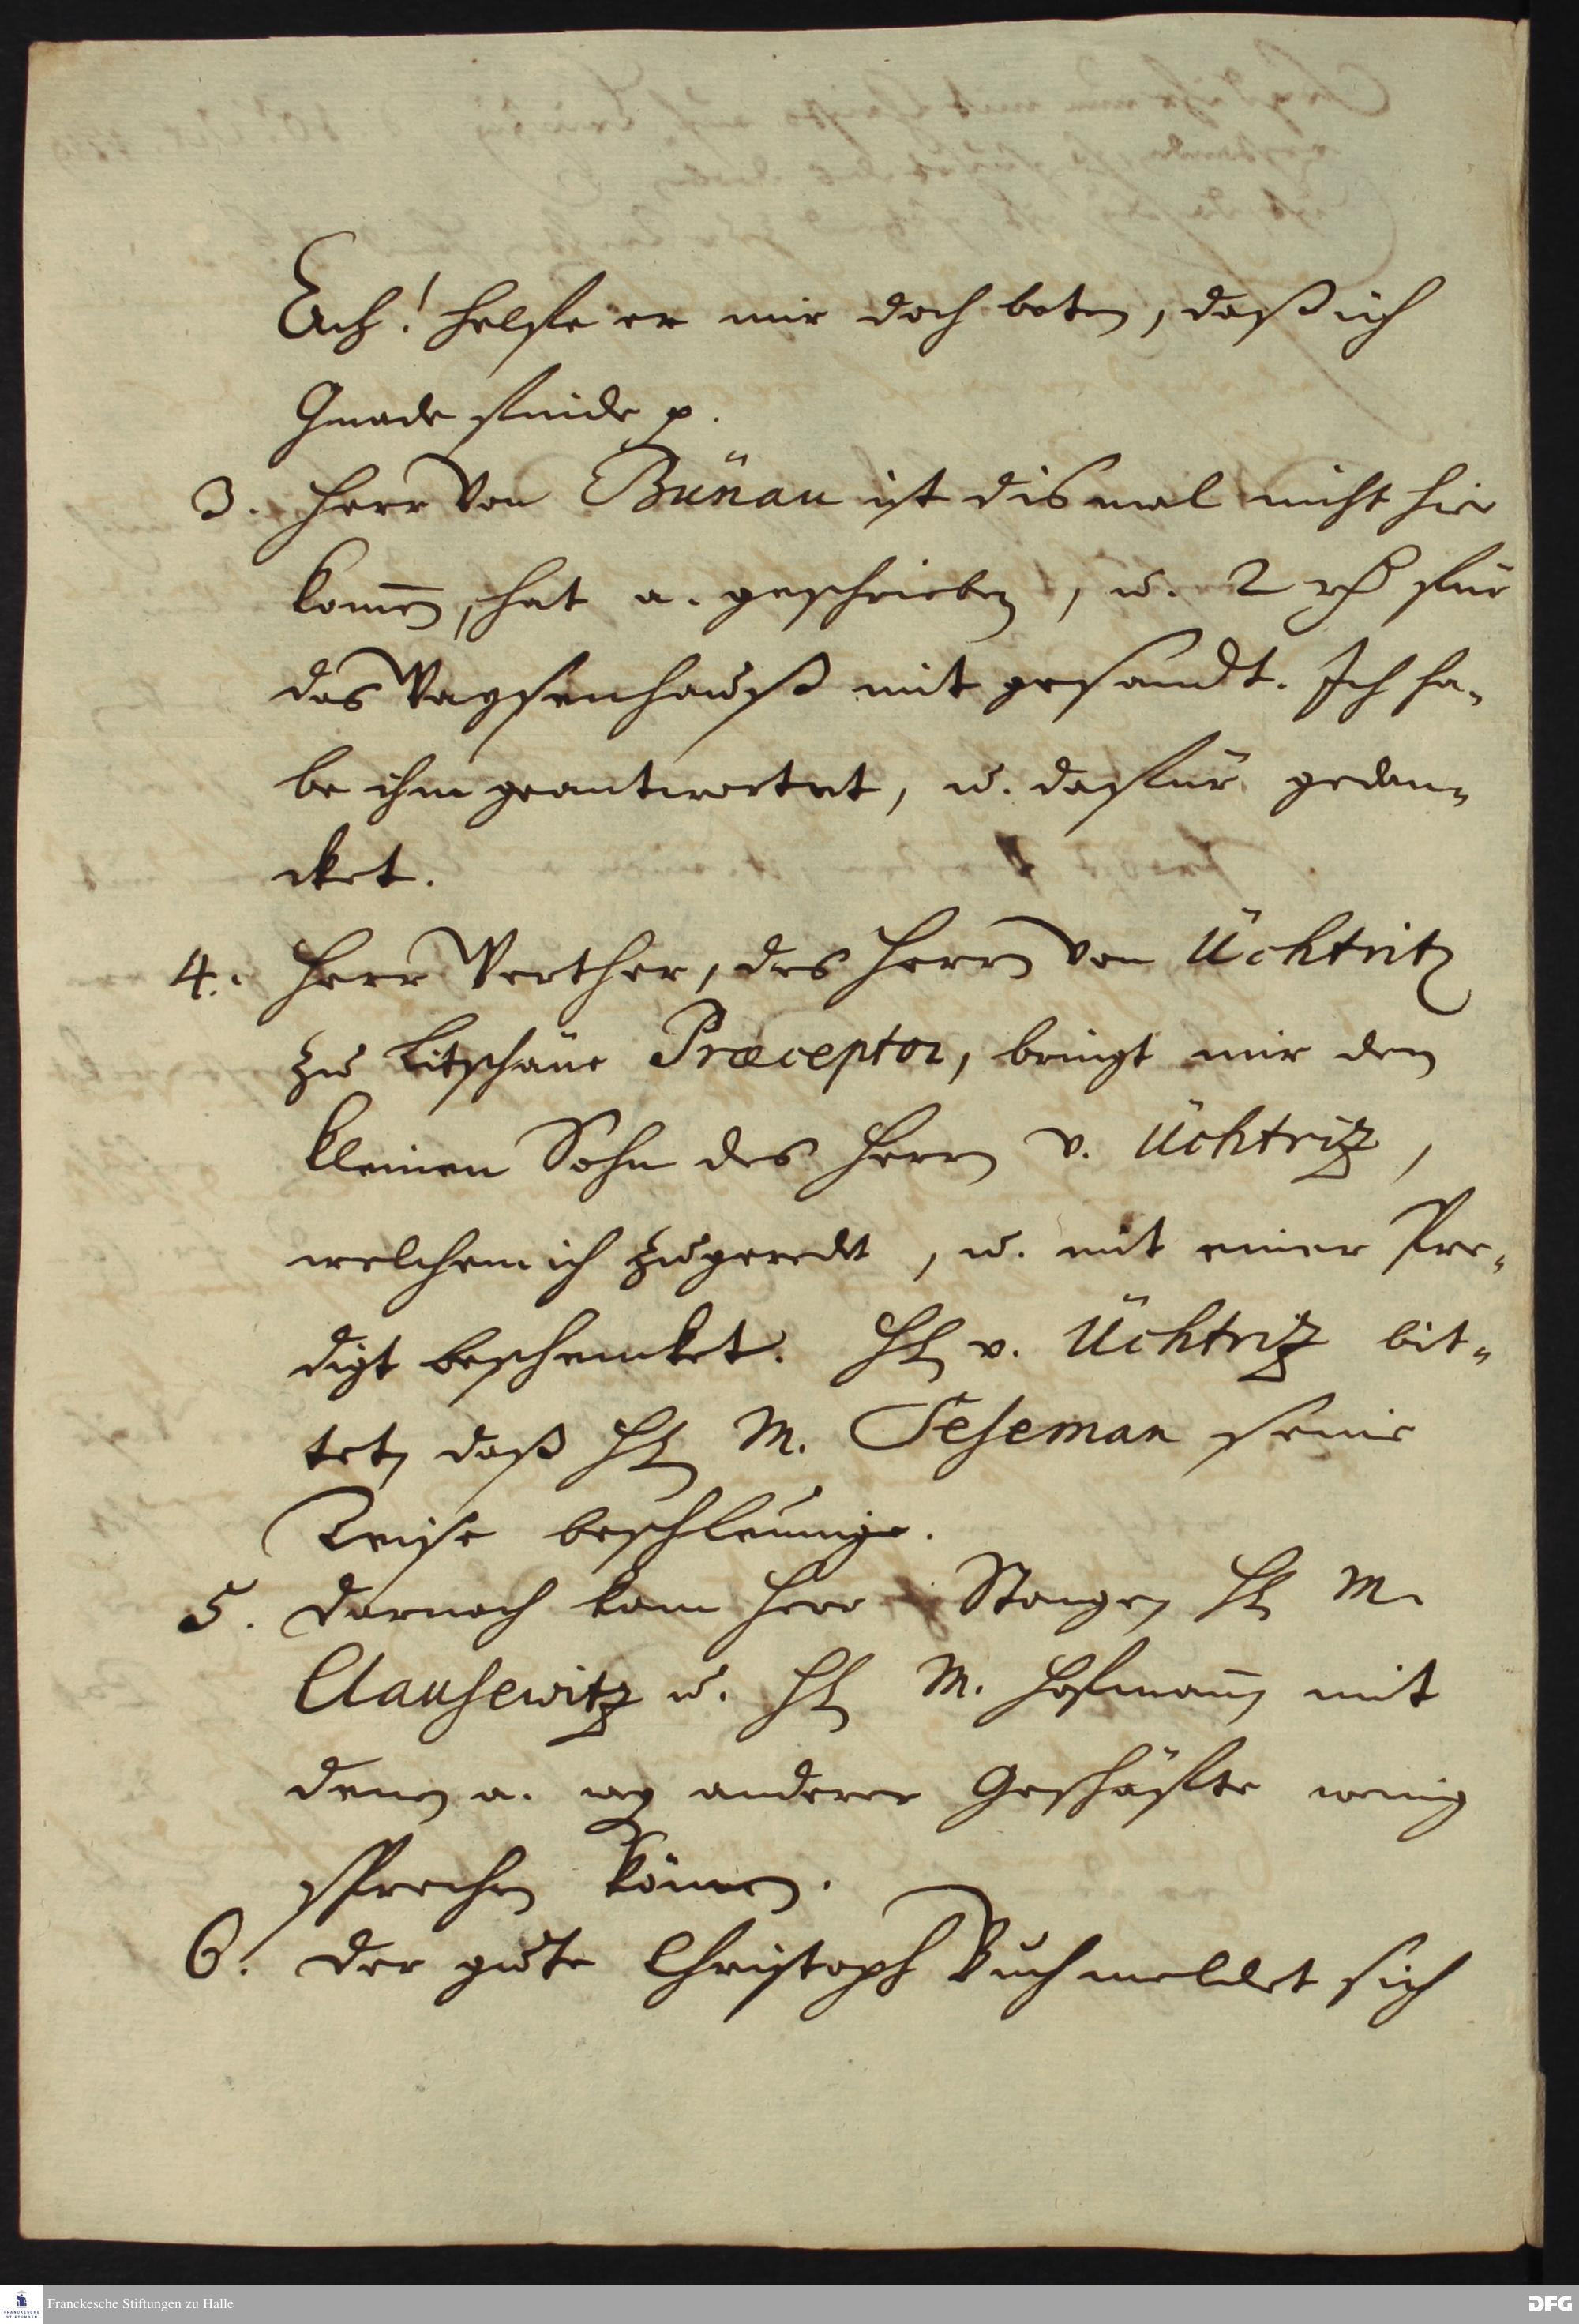 Ach! helffe er mir doch beten, daß ich
Gnade finde p.
3. Herr von Bünau ist dismal nicht hie
kom̄en, hat a. geschrieben, u. 2 rth für
das Waysenhauß mit gesandt. Ich ha-
be ihm geantwortet, u. dafür gedan-
cket.
4. Herr Werther, des Herrn von Üchtritz
zu Litschäne Præceptor, bringt mir den
kleinen Sohn des Herrn v. Üchtriz,
welchem ich zugeredt, u. mit einer Pre-
digt beschencket. H. v. Üchtriz bit-
tet, daß H. M. Seseman seine
Reise beschleunige.
5. Darnach kam Herr Stange, H. M.
Clausewitz u. H. M. Hofman̄, mit
denen a. weg anderer Geschäffte wenig
sprechen können.
6. Der gute Christoph Buch meldet sich
Franckesche Stiftungen zu Halle
FRANCKESCHE
STIFTUNGEN
DFG